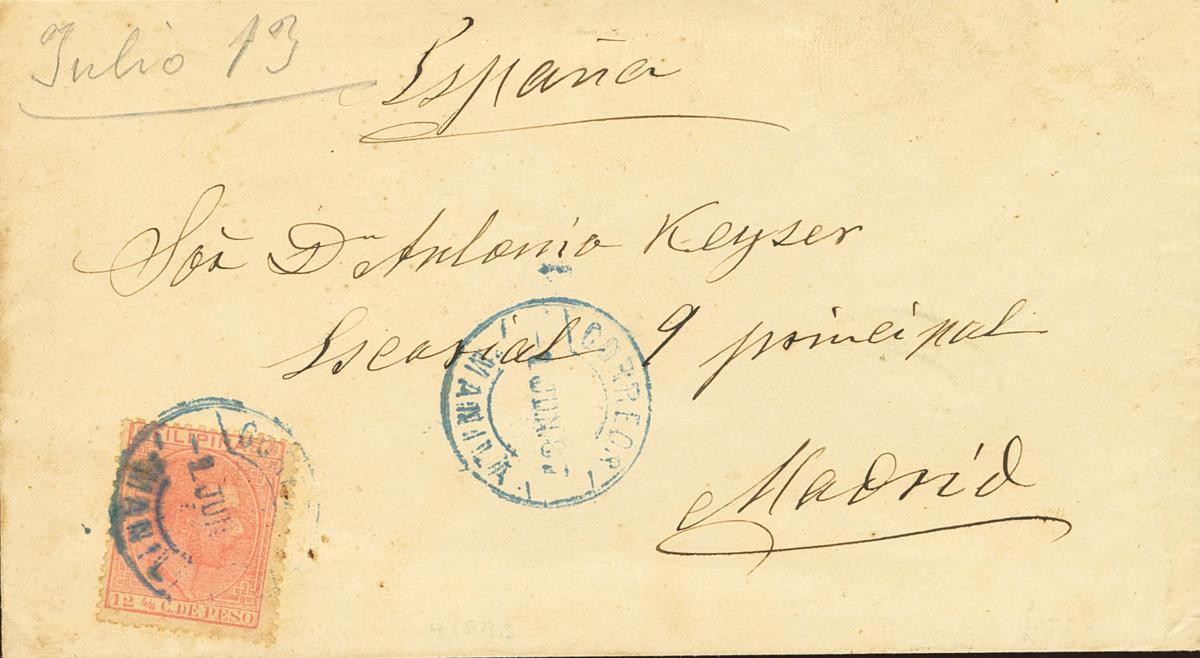 Julio 13
España
Sor Dn Antonio Keyser
Escorial 9 principal
Madrid
CORREOS
1 JUN 87
MANILA
FILIPINAS
MANILA
1 JUN
12 4/8 C. DE PESO